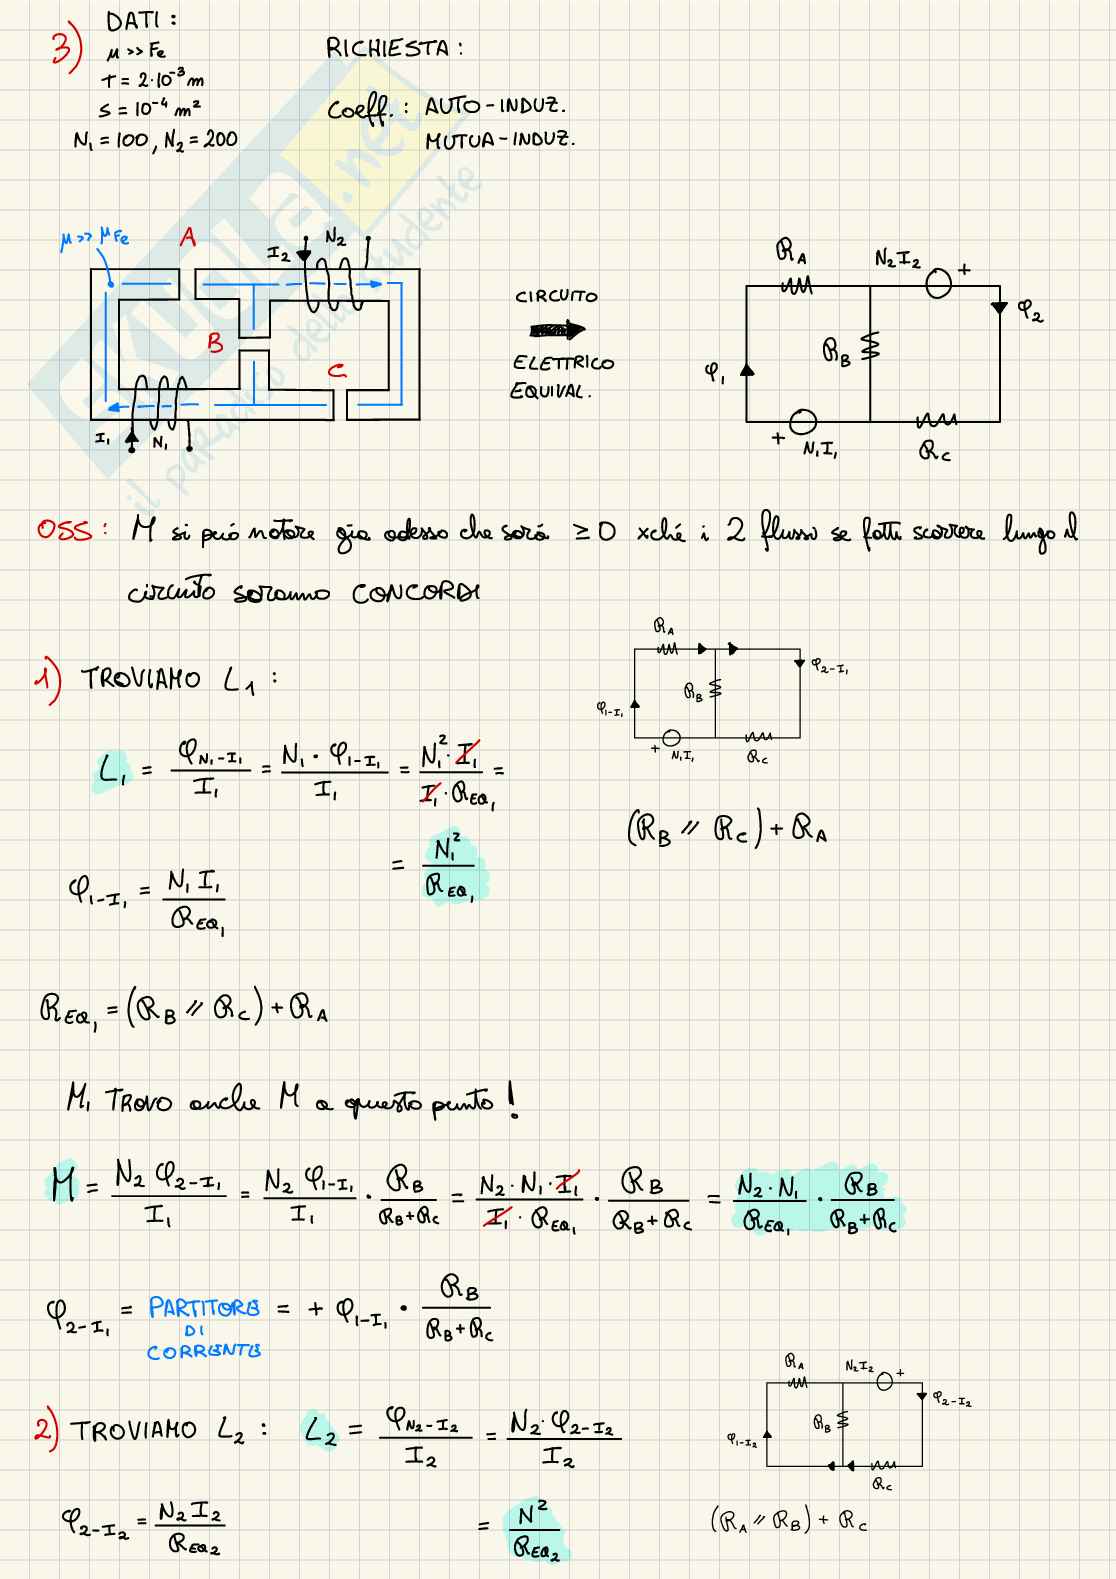 3) DATI :
μ >> Fe
T = 2·10⁻³ m
S = 10⁻⁴ m²
N₁ = 100 , N₂ = 200
RICHIESTA :
Coeff. : AUTO-INDUZ.
MUTUA-INDUZ.
SKUOLA.net
il paradiso dello studente
μ >> μFe
A
I₂
N₂
B
C
I₁
N₁
CIRCUITO
ELETTRICO
EQUIVAL.
R_A
N₂I₂
+
φ₂
R_B
φ₁
+
N₁I₁
R_C
OSS : M si può notare già adesso che sarà ≥ 0 xché i 2 flussi se fatti scorrere lungo il
circuito saranno CONCORDI
1) TROVIAMO L₁ :
R_A
R_B
φ₂₋I₁
φ₁₋I₁
+ N₁I₁
R_C
L₁ = φN₁₋I₁ / I₁ = N₁ · φ₁₋I₁ / I₁ = N₁² · I₁ / I₁ · R_EQ₁ =
= N₁² / R_EQ₁
(R_B // R_C) + R_A
φ₁₋I₁ = N₁ I₁ / R_EQ₁
R_EQ₁ = (R_B // R_C) + R_A
M, TROVO anche M a questo punto !
M = N₂ φ₂₋I₁ / I₁ = N₂ φ₁₋I₁ / I₁ · R_B / R_B+R_C = N₂ · N₁ · I₁ / I₁ · R_EQ₁ · R_B / R_B+R_C = N₂ · N₁ / R_EQ₁ · R_B / R_B+R_C
φ₂₋I₁ = PARTITORE DI CORRENTE = + φ₁₋I₁ · R_B / R_B+R_C
2) TROVIAMO L₂ : L₂ = φN₂₋I₂ / I₂ = N₂ · φ₂₋I₂ / I₂
= N² / R_EQ₂
φ₂₋I₂ = N₂ I₂ / R_EQ₂
R_A
N₂I₂
+
φ₂₋I₂
R_B
φ₁₋I₂
R_C
(R_A // R_B) + R_C